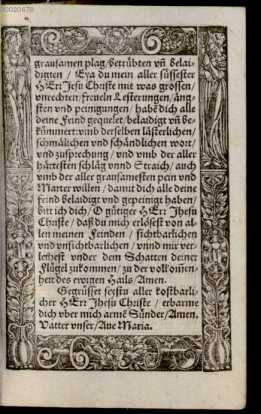 0020679
grausamen plag/betrübten vñ belai-
digten / Eya du mein aller süssester
HErr Jesu Christe mit was grossen/
vnrechten/freueln Lesterungen/äng-
sten vnd peinigungen/ habẽ dich alle
deine Feind gequelet/belaidigt vñ be-
kümmert: vmb derselben lästerlichen/
schmälichen vnd schändlichen wort/
vnd zusprechung / vnd vmb der aller
härtesten schläg vnnd Straich/ auch
vmb der aller grausamesten pein vnd
Marter willen / damit dich alle deine
feind belaidigt vnd gepeinigt haben/
bitt ich dich/ O gütiger HErr Jhesu
Christe / daß du mich erlösest von al-
len meinen Feinden / sichtbarlichen
vnd vnsichtbarlichen/ vnnd mir ver-
leihest vnder dem Schatten deiner
Flügel zukommen/ zu der volkom̃en-
heit des ewigen Hails/Amen.
Gegrüsset seystu aller kostbarli-
cher HErr Jhesu Christe / erbarme
dich vber mich armẽ Sünder/Amen.
Vatter vnser/Aue Maria.